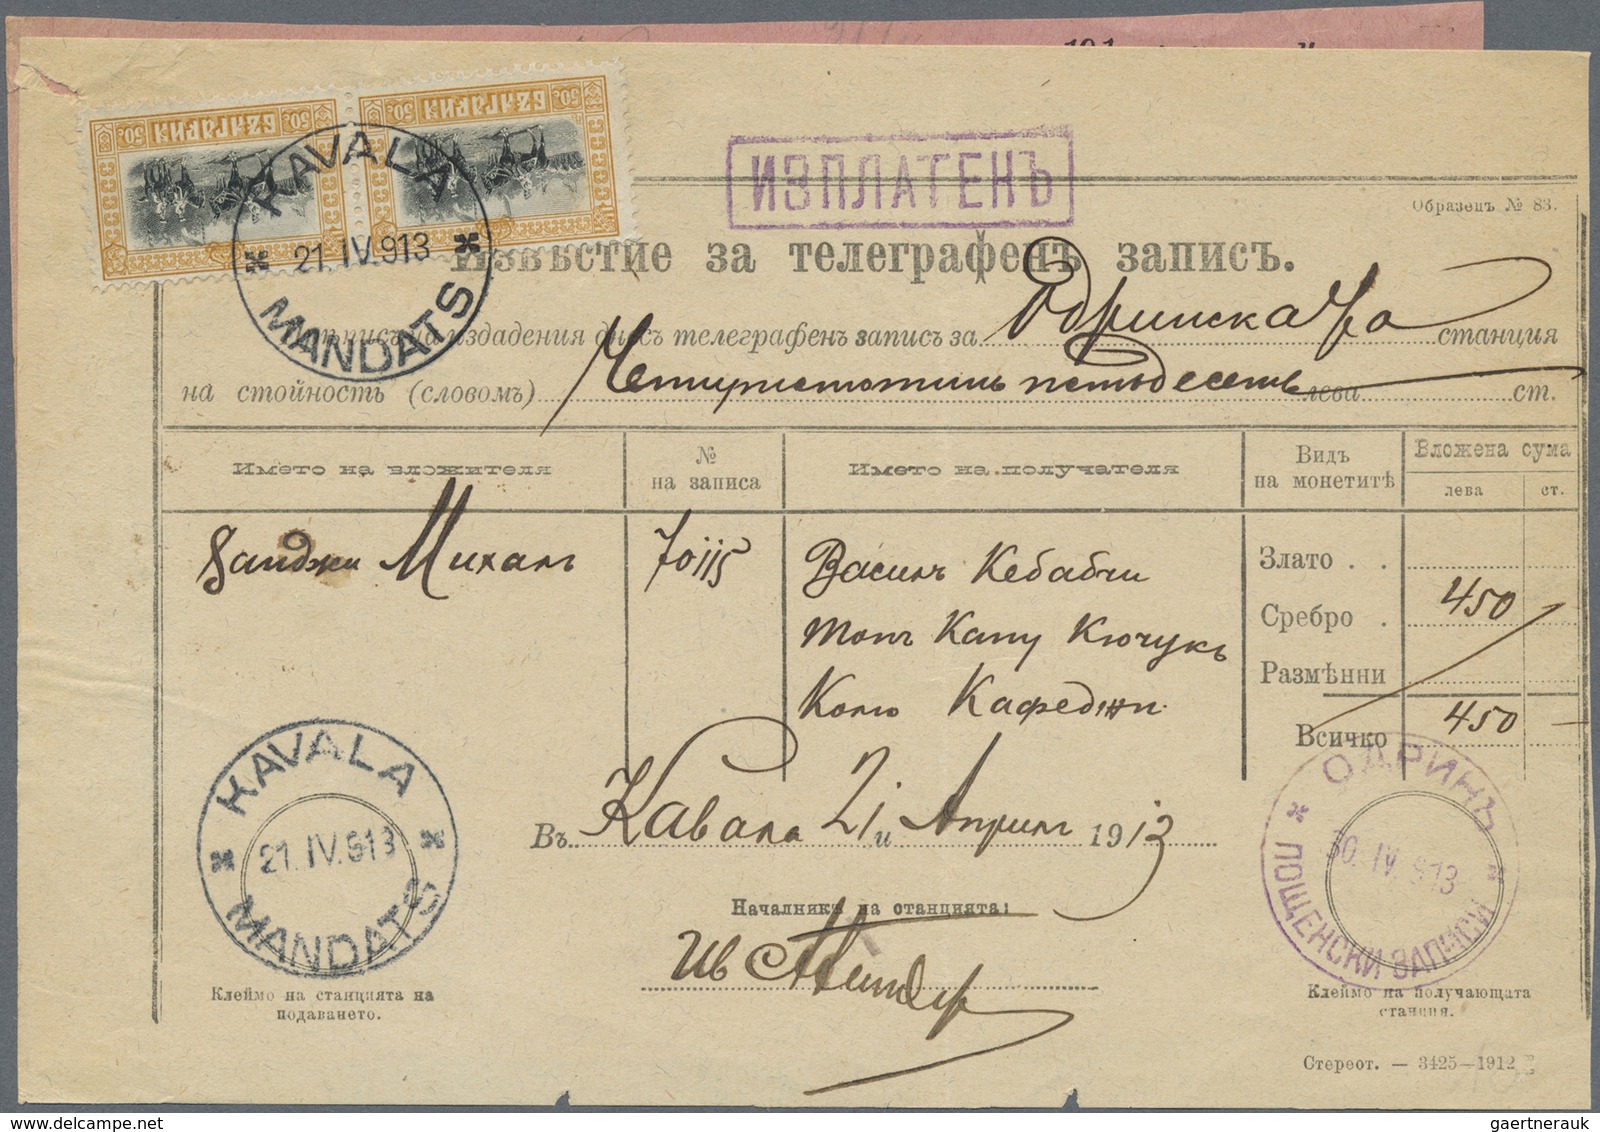 50. БЪЛГАРИЯ 50.
50. БЪЛГАРИЯ 50.
KAVALA
21 IV.913
MANDATS
ИЗПЛАТЕНЪ
Образецъ № 83.
Извѣстие за телеграфенъ записъ.
издадения днесъ телеграфенъ записъ за Одринска станция
на стойность (словомъ) Четиристотинъ петьдесетъ лева ст.
Името на вложителя
№ на записа
Името на получателя
Видъ на монетитѣ
Вложена сума
лева ст.
Михалъ
Василъ Кебабчи
Топъ Капу Кючукъ
Колю Кафеджи
Злато . .
Сребро . 450
Размѣнни
Всичко 450
Въ Кавала 21 и Априлъ 1913
Началникъ на станцията:
Ив
KAVALA
21. IV. 913
MANDATS
Клеймо на станцията на
подаването.
ОДРИНЪ
30. IV. 913
ПОЩЕНСКИ ЗАПИСИ
Клеймо на получающата
станция.
Стереот. — 3425—1912
gaertnerauk